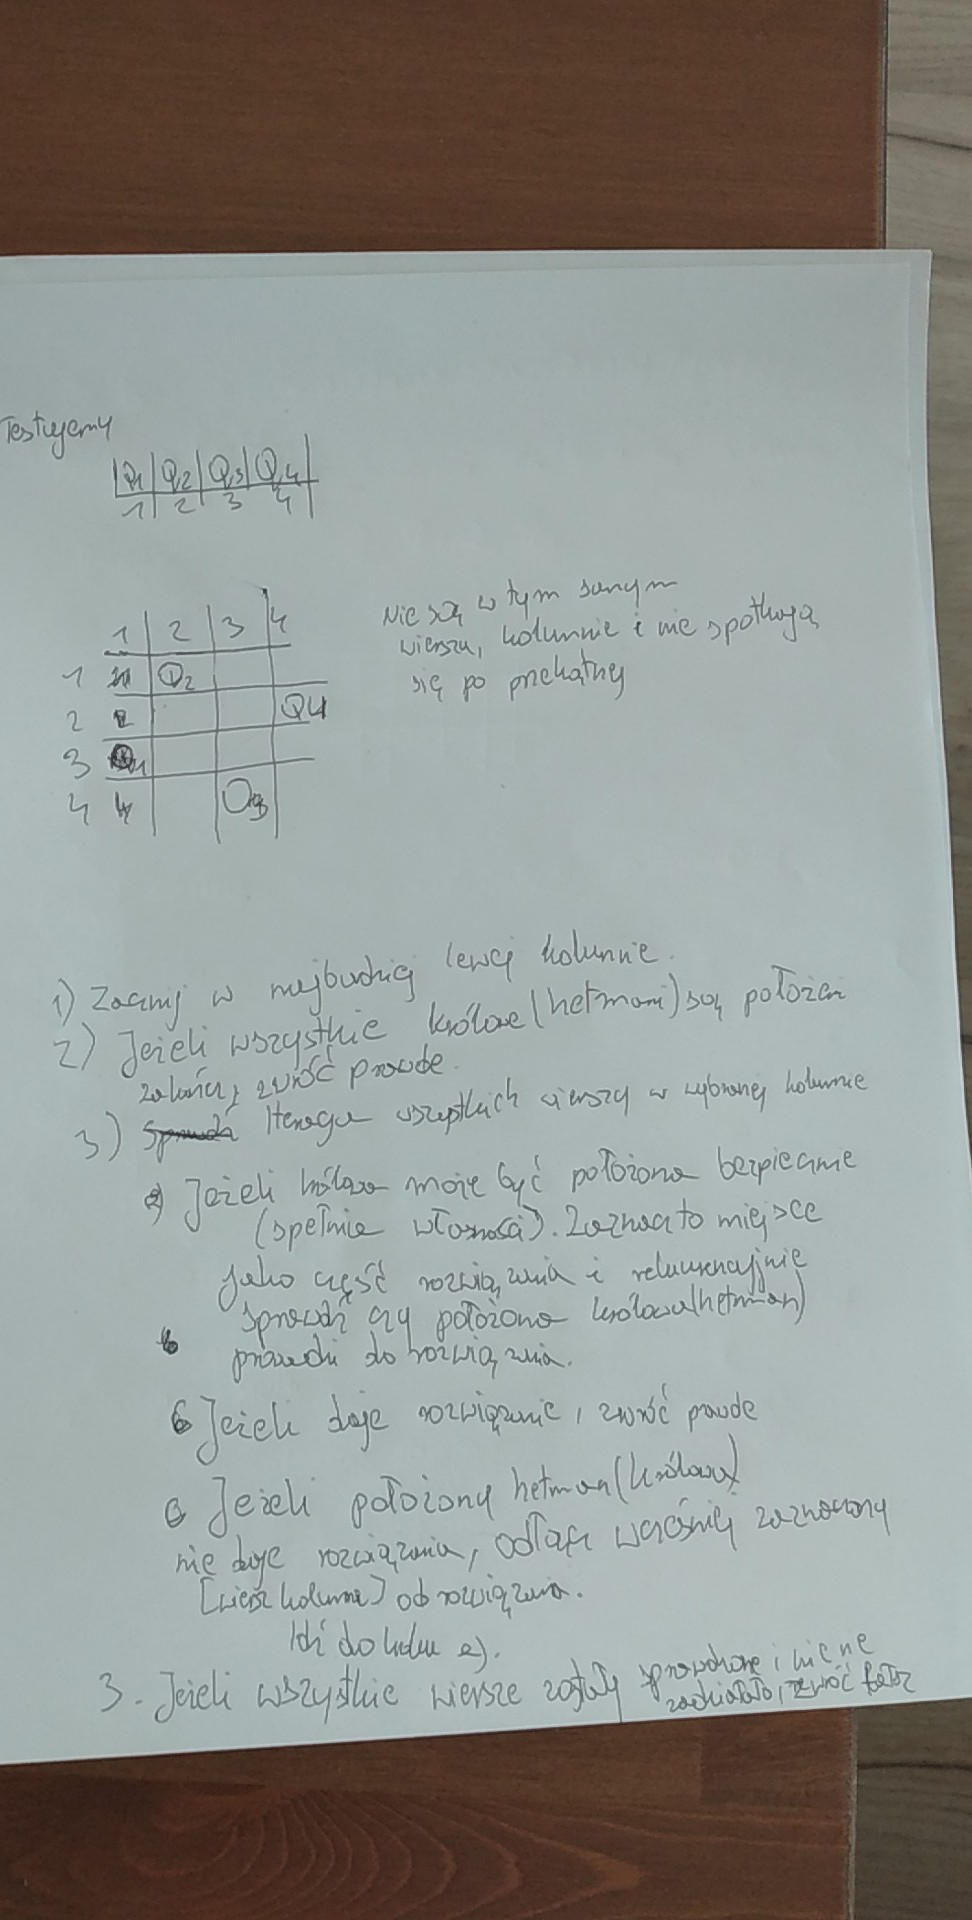 Testujemy
Q1 Q2 Q3 Q4
1 2 3 4
1 2 3 4
1 Q2
2 Q4
3 Q1
4 4 Q3
Nie są w tym samym
wierszu, kolumnie i nie spotkają
się po przekątnej
1) Zacznij w najbardziej lewej kolumnie.
2) Jeżeli wszystkie królowe (hetmani) są położen
zakończ, zwróć prawdę.
3) Sprawdź Iteracja wszystkich wierszy w wybranej kolumnie
a) Jeżeli królowa może być położona bezpiecznie
(spełnia własności). Zaznacz to miejsce
jako część rozwiązania i rekurencyjnie
sprawdź czy położona królowa (hetman)
b prowadzi do rozwiązania.
b Jeżeli daje rozwiązanie, zwróć prawdę
c Jeżeli położony hetman (królowa)
nie daje rozwiązania, odłącz wcześniej zaznaczony
[wiersz kolumna] od rozwiązania.
Idź do kroku a).
3. Jeżeli wszystkie wiersze zostały sprawdzone i nic nie
zadziałało, zwróć fałsz